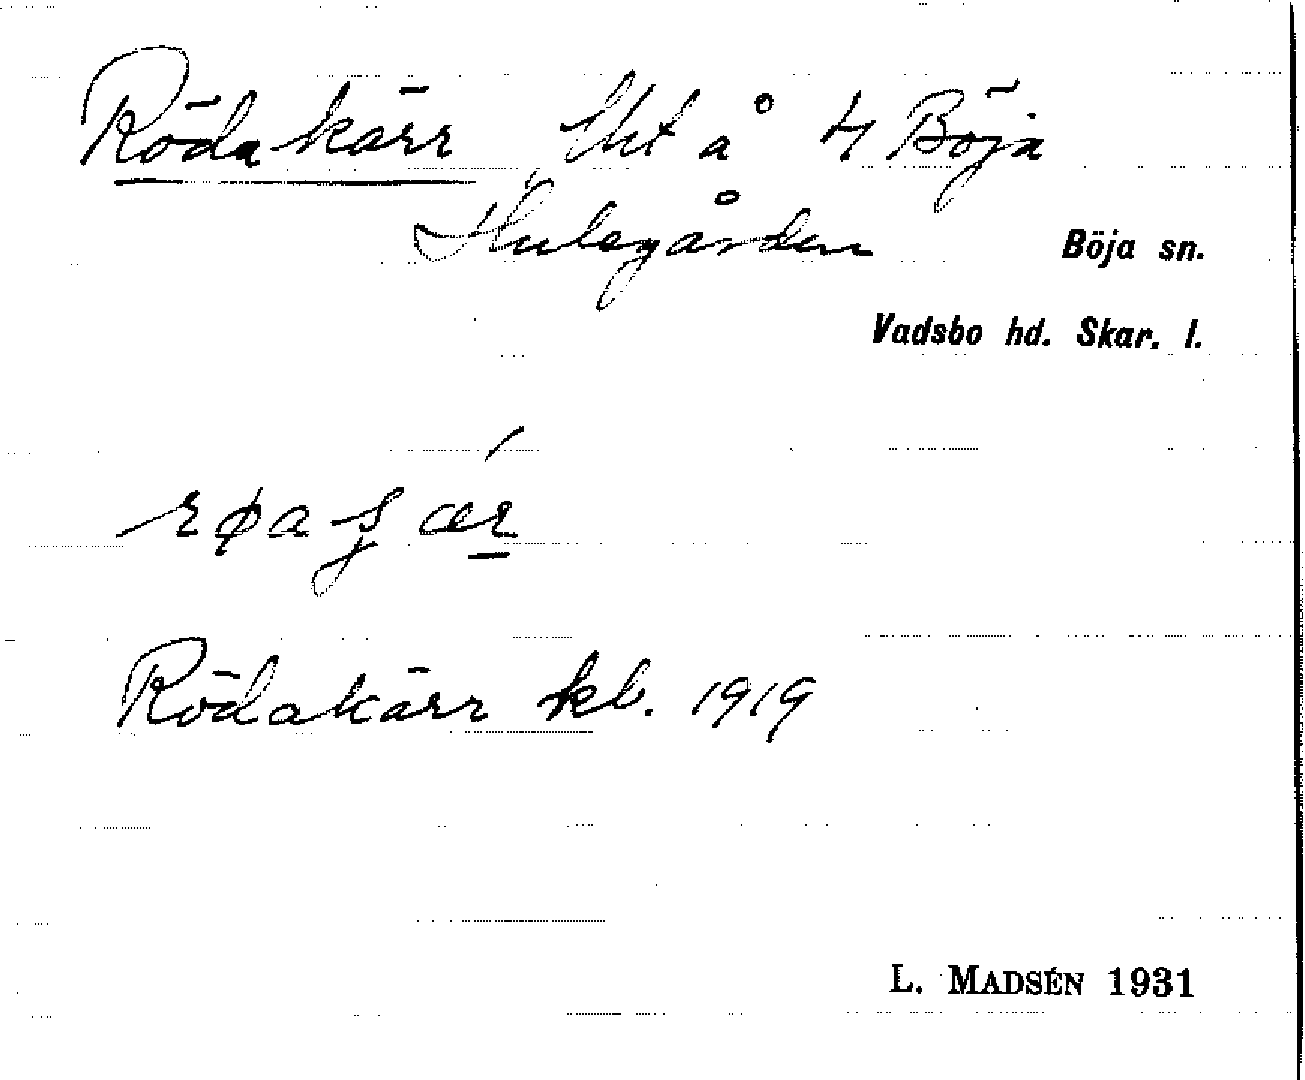 Rödakärr tkt å 4 Böja
Hulegården
Böja sn.
Vadsbo hd. Skar. l.
Rödakärr kb. 1919
L. MADSÉN 1931